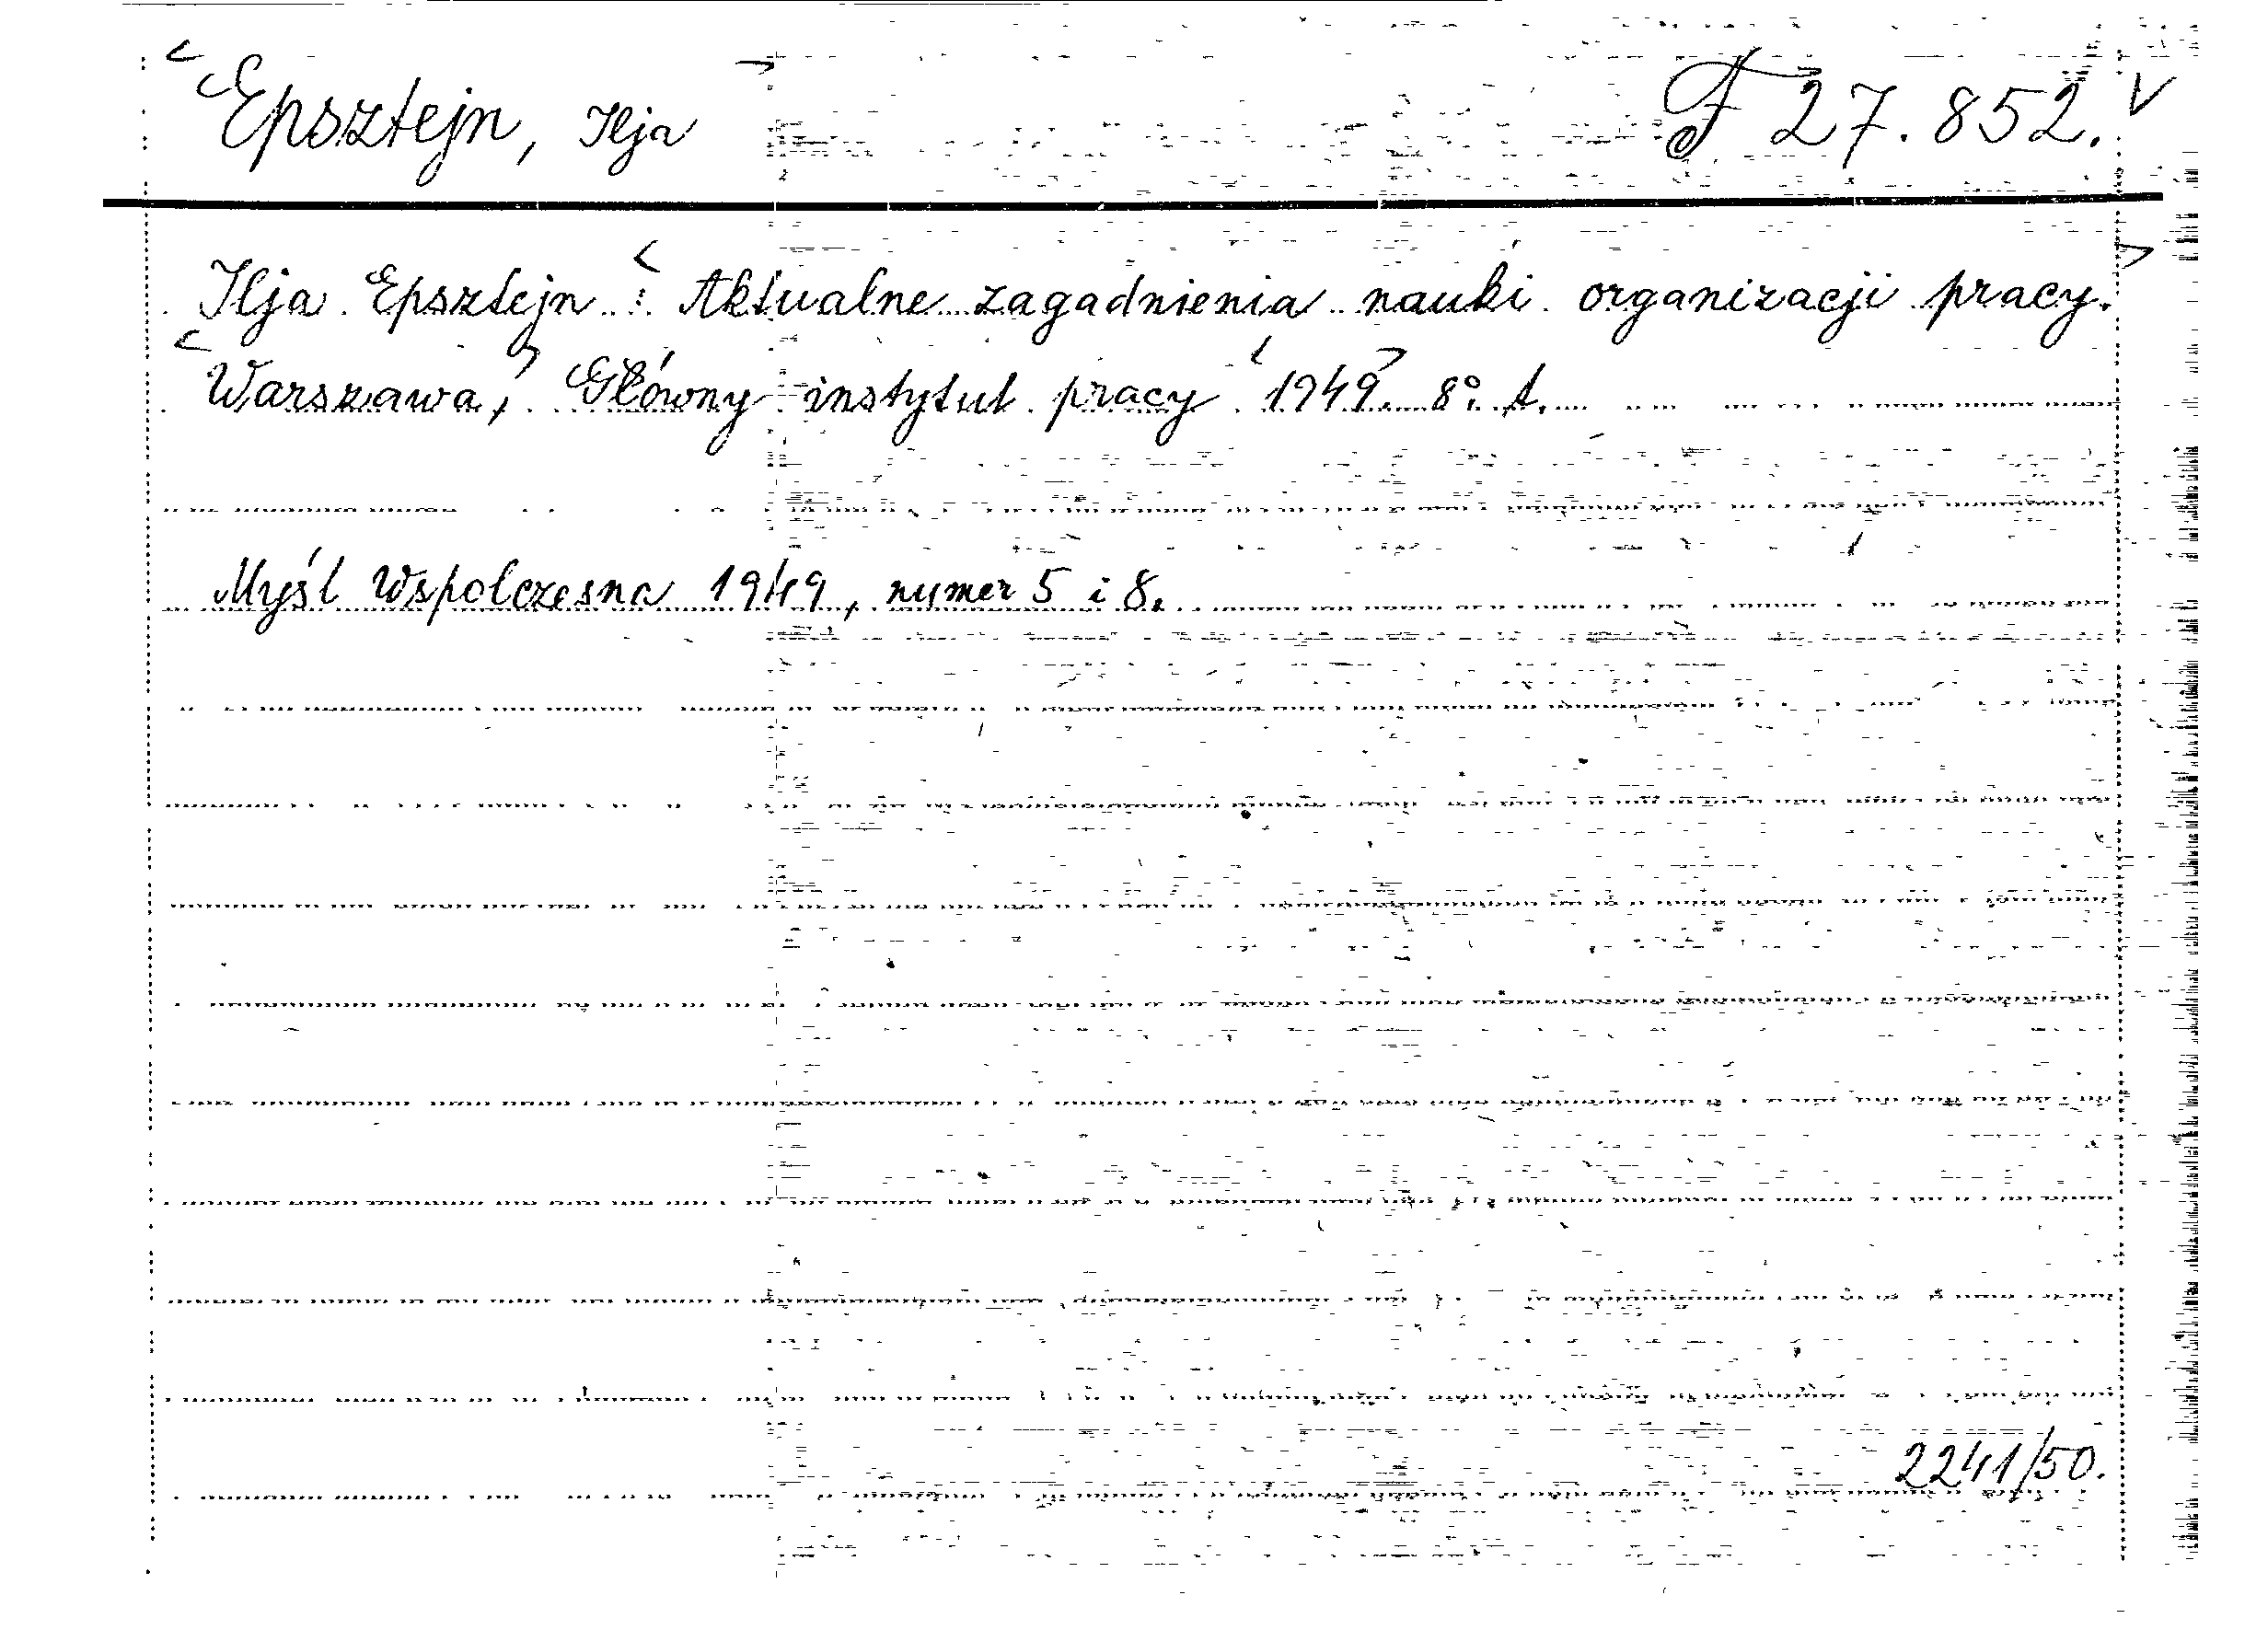 Epsztejn, Ilja F 27.852. V
Ilja Epsztejn : Aktualne zagadnienia nauki organizacji pracy.
Warszawa, Główny instytut pracy 1949. 8° t.
Myśl Wspolczesna 1949, numer 5 i 8.
2241/50.